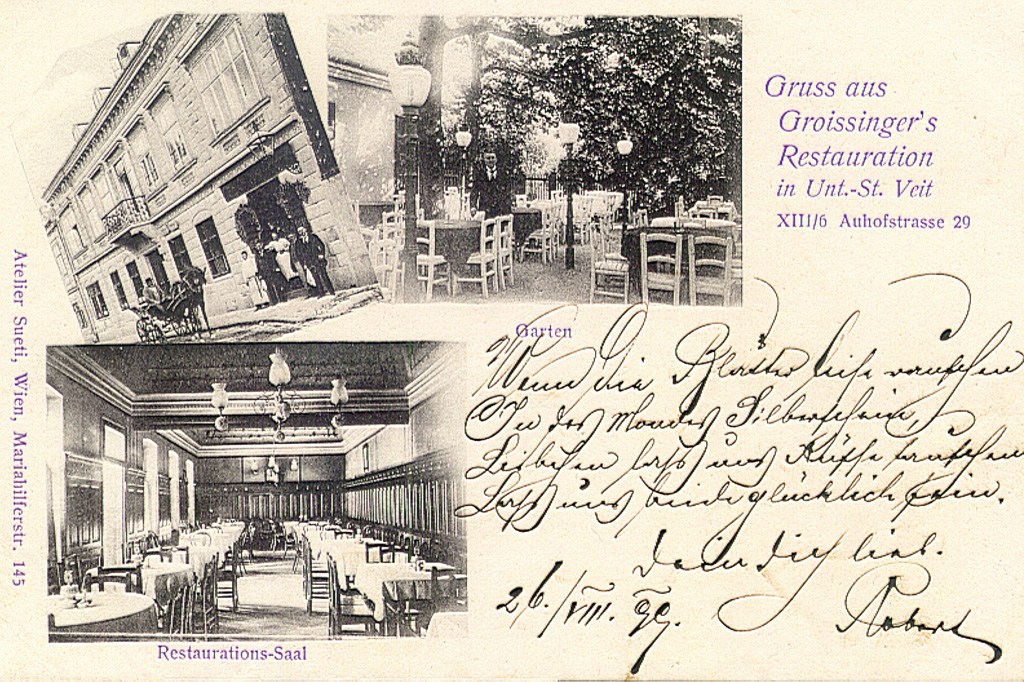 Gruss aus
Groissinger's
Restauration
in Unt.-St. Veit
XIII/6 Auhofstrasse 29
Garten
Wenn die Blätter leise rauschen
In des Mondes Silberschein,
Liebchen lass uns Küsse tauschen
Lass uns beide glücklich sein.
Dein dich lieb.
Robert
26./VIII. 99.
Restaurations-Saal
Atelier Sueti, Wien, Mariahilferstr. 145